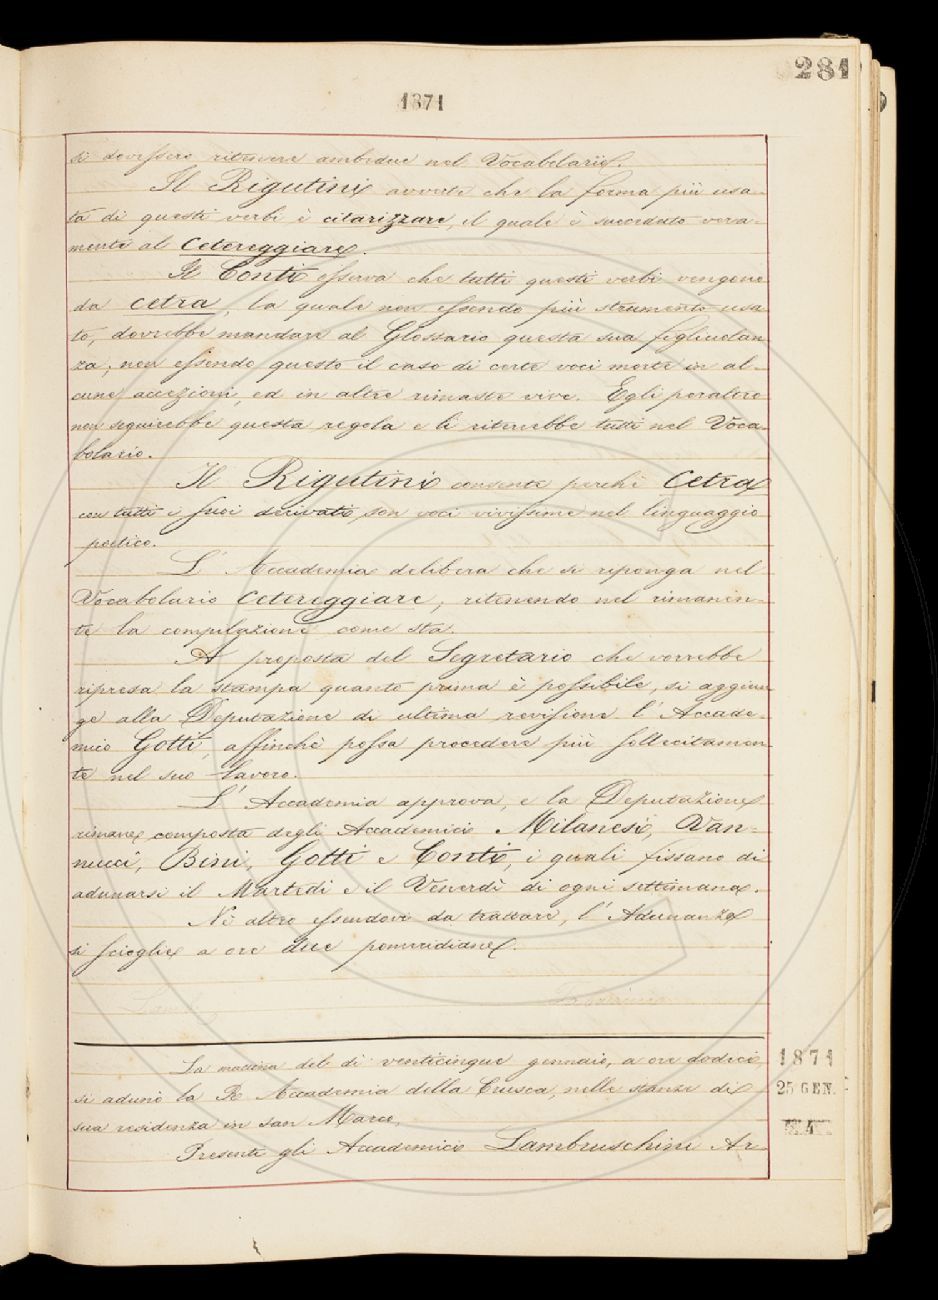 281
1871
si dovessero ritenere ambedue nel Vocabolario.
Il Rigutini avverte che la forma più usa-
ta di questi verbi è citarizzare, il quale è succeduto vera-
mente al Cetereggiare.
Il Conti osserva che tutti questi verbi vengono
da cetra, la quale non essendo più strumento usa-
to, dovrebbe mandare al Glossario questa sua figliuolan-
za; non essendo questo il caso di certe voci morte in al-
cune accezioni, ed in altre rimaste vive. Egli peraltro
non seguirebbe questa regola e li riterrebbe tutti nel Voca-
bolario.
Il Rigutini consente perchè Cetra
con tutti i suoi derivati son voci vivissime nel linguaggio
poetico.
L' Accademia delibera che si riponga nel
Vocabolario Cetereggiare, ritenendo nel rimanen-
te la compilazione come sta.
A proposta del Segretario che vorrebbe
ripresa la stampa quanto prima è possibile, si aggiun
ge alla Deputazione di ultima revisione l' Accade-
mico Gotti, affinchè possa procedere più sollecitamen
te nel suo lavoro.
L' Accademia approva, e la Deputazione
rimane composta degli Accademici Milanesi, Van-
nucci, Bini, Gotti e Conti, i quali fissano di
adunarsi il Martedì e il Venerdì di ogni settimana.
Nè altro essendovi da trattare, l' Adunanza
si scioglie a ore due pomeridiane.
La mattina del dì venticinque gennaio, a ore dodici,
si adunò la R. Accademia della Crusca, nelle stanze di
sua residenza in san Marco.
Presenti gli Accademici Lambruschini Ar-
1871
25 GEN.